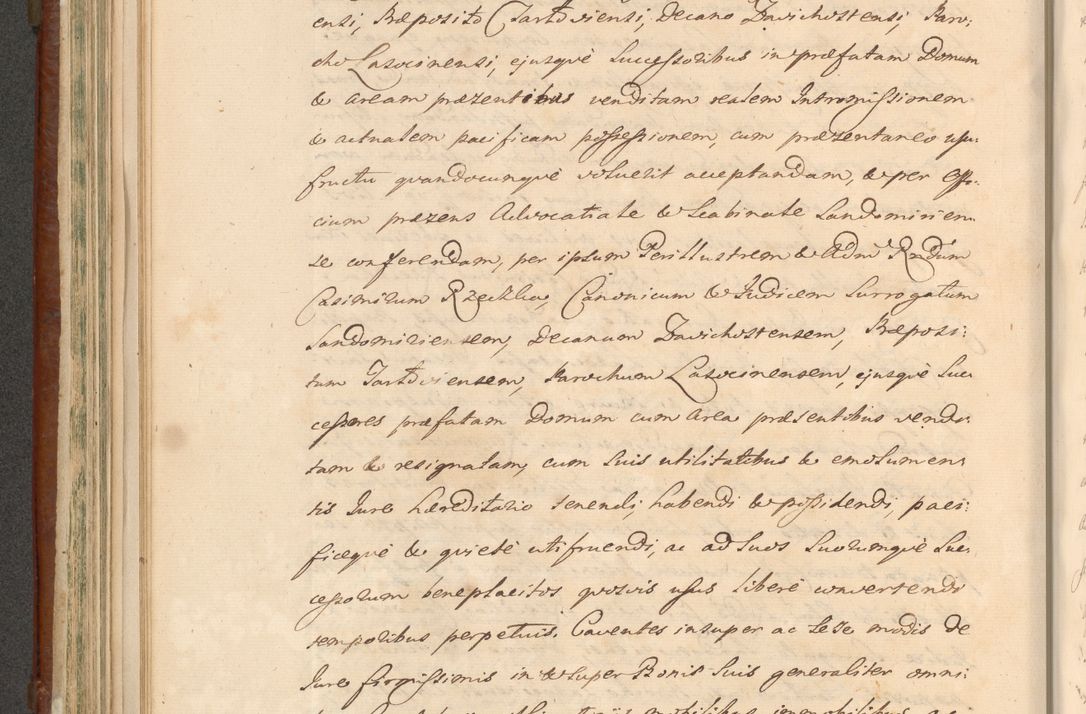 ensi, Præposito Tarłoviensi, Decano Zavichostensi, Paro:
cho Lasocinensi, ejusqvè Successoribus in præfatam Domum
& Aream præzentibus venditam realem Intromissionem
& actualem pacificam possessionem, cum præzentaneo usu:
fructu qvandocunqvè voluerit acceptandam, & per Offi:
cium præzens Advocatiale & Scabinale Sandomirien:
se conferendam, per ipsum Perillustrem & Adm Rndum
Casimirum Rzeczka, Canonicum & Judicem Surrogatum
Sandomiriensem, Decanum Zavichostensem, Præposi:
tum Tarłoviensem, Parochum Lasocinensem, ejusqvè Suc:
cessores præfatam Domum cum Area præsentibus vendi:
tam & resignatam, cum suis utilitatibus & emolumen:
tis Jure hæreditario tenendi, habendi & possidendi, paci:
ficeqvè & qvietè utifruendi, ac ad suos Suorumqvè Suc:
cessorum beneplacitos qvosvis usus liberè convertendi
temporibus perpetuis. Caventes insuper ac sese modis de
Jure firmissimis in & super Bonis suis generaliter omni:
mobilibus immobilibus ac